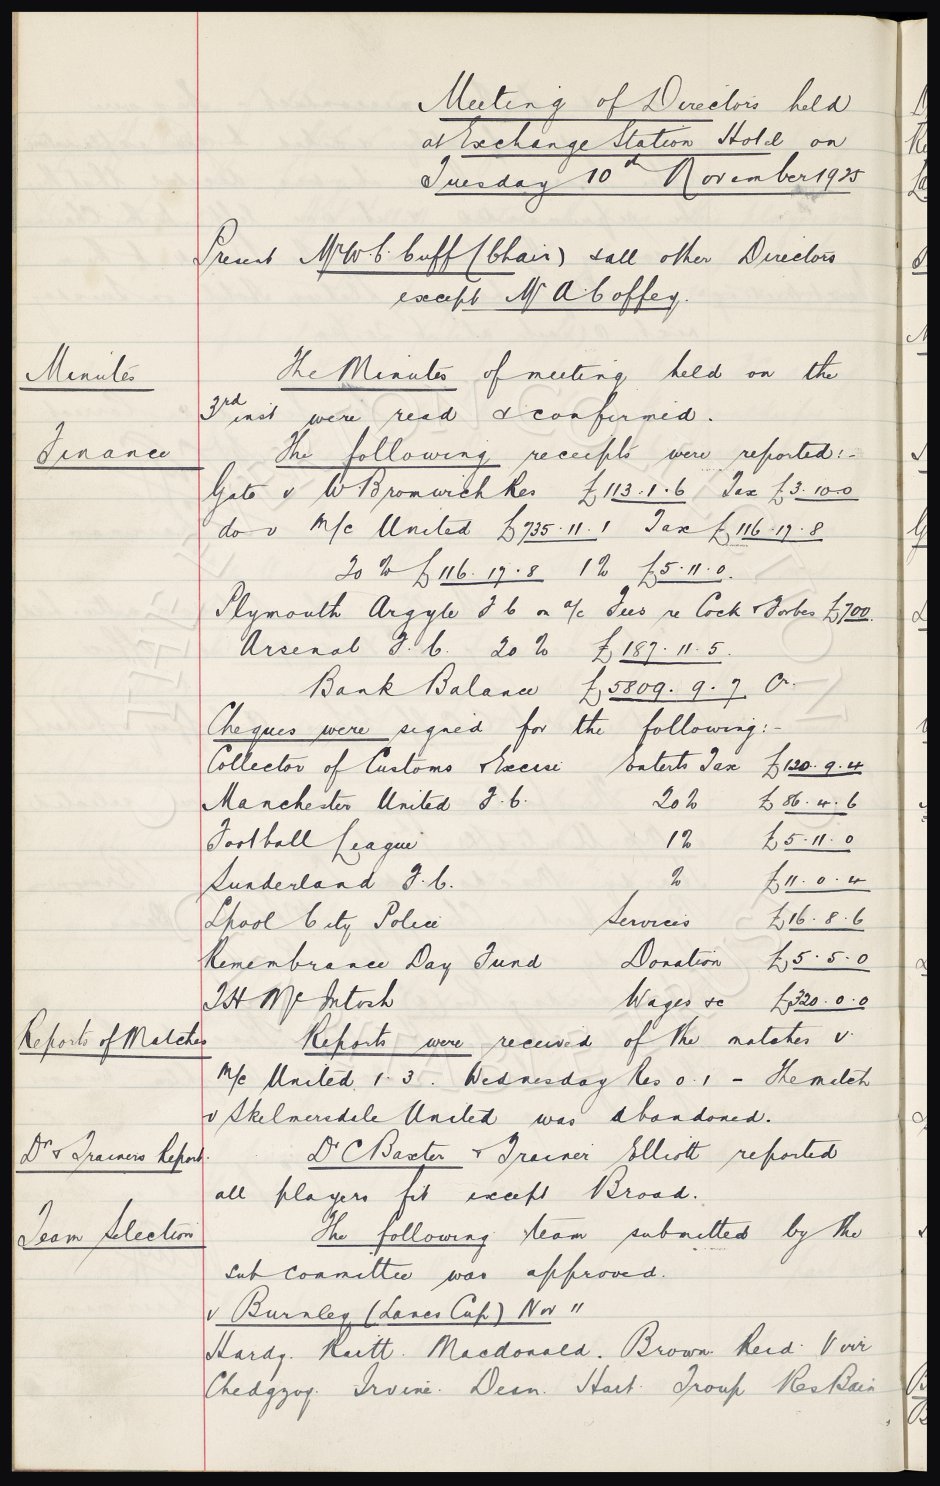 Meeting of Directors held
at Exchange Station Hotel on
Tuesday 10th November 1925
Present Mr W.C. Cuff (Chair) & all other Directors
except Mr A. Coffey.
Minutes The Minutes of meeting held on the
3rd inst were read & confirmed.
Finance The following receipts were reported:-
Gate v W Bromwich Res £113.1.6 Tax £3.10.0
do v M/c United £735.11.1 Tax £116.17.8
20% £116.17.8 1% £5.11.0.
Plymouth Argyle F.C on a/c Fees re Cock & Forbes £700.
Arsenal F.C. 20% £187.11.5.
Bank Balance £5809.9.7 Cr.
Cheques were signed for the following:-
Collector of Customs & Excise Enterts Tax £120.9.4
Manchester United F.C. 20% £86.4.6
Football League 1% £5.11.0
Sunderland F.C. % £11.0.4
Lpool City Police Services £16.8.6
Remembrance Day Fund Donation £5.5.0
T H McIntosh Wages &c £320.0.0
Reports of Matches Reports were received of the matches v
M/c United 1.3. Wednesday Res 0.1 - The match
v Skelmersdale United was abandoned.
Dr & Trainers Report. Dr C Baxter & Trainer Elliott reported
all players fit except Broad.
Team Selection The following team submitted by the
sub committee was approved.
v Burnley (Lancs Cup) Nov 11
Hardy. Raitt. Macdonald. Brown. Reid. Virr
Chedgzoy. Irvine. Dean. Hart. Troup Res Bain